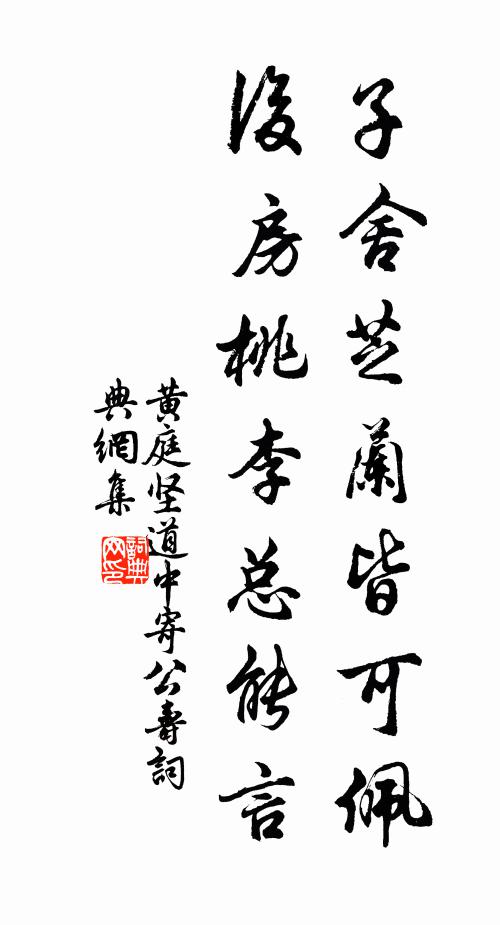 子舍芝蘭皆可佩
後房桃李总能言
黄庭坚道中寄公壽詞
典網集
詞典
网印